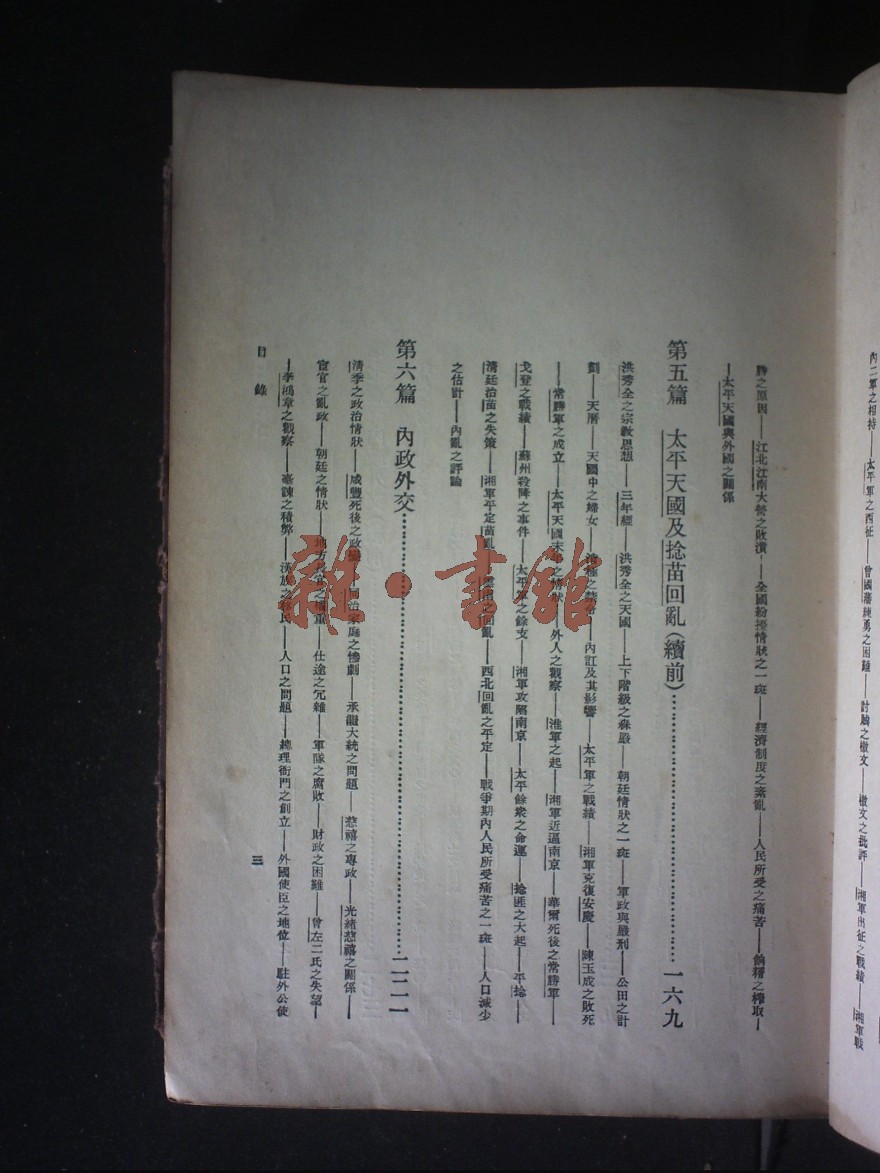 內二軍之相持——太平軍之西征——曾國藩練勇之困難——討賊之檄文——檄文之批評——湘軍出征之戰績——湘軍戰
勝之原因——江北江南大營之敗潰——全國紛擾情狀之一斑——經濟制度之紊亂——人民所受之痛苦——餉糈之榨取——
——太平天國與外國之關係
第五篇 太平天國及捻苗回亂(續前)……一六九
洪秀全之宗教思想——三年經——洪秀全之天國——上下階級之森嚴——朝廷情狀之一斑——軍政與嚴刑——公田之計
劃——天曆——天國中之婦女——內訌及其影響——太平軍之戰績——湘軍克復安慶——陳玉成之敗死
——常勝軍之成立——太平天國末年之情狀——外人之觀察——淮軍之起——湘軍近逼南京——華爾死後之常勝軍——
戈登之戰績——蘇州殺降之事件——太平軍之餘支——湘軍攻陷南京——太平餘衆之命運——捻匪之大起——平捻——
清廷治苗之失策——湘軍平定苗亂——雲南之回亂——西北回亂之平定——戰爭期內人民所受痛苦之一斑——人口減少
之估計——內亂之評論
第六篇 內政外交……二二一
清季之政治情狀——咸豐死後之政變——同治家庭之慘劇——承繼大統之問題——慈禧之專政——光緒慈禧之關係——
宦官之亂政——朝廷之情狀——地方長官之權重——仕途之冗雜——軍隊之腐敗——財政之困難——曾左二氏之失望——
——李鴻章之觀察——臺諫之積弊——漢族之移民——人口之問題——總理衙門之創立——外國使臣之地位——駐外公使
目錄
三
雜·書館